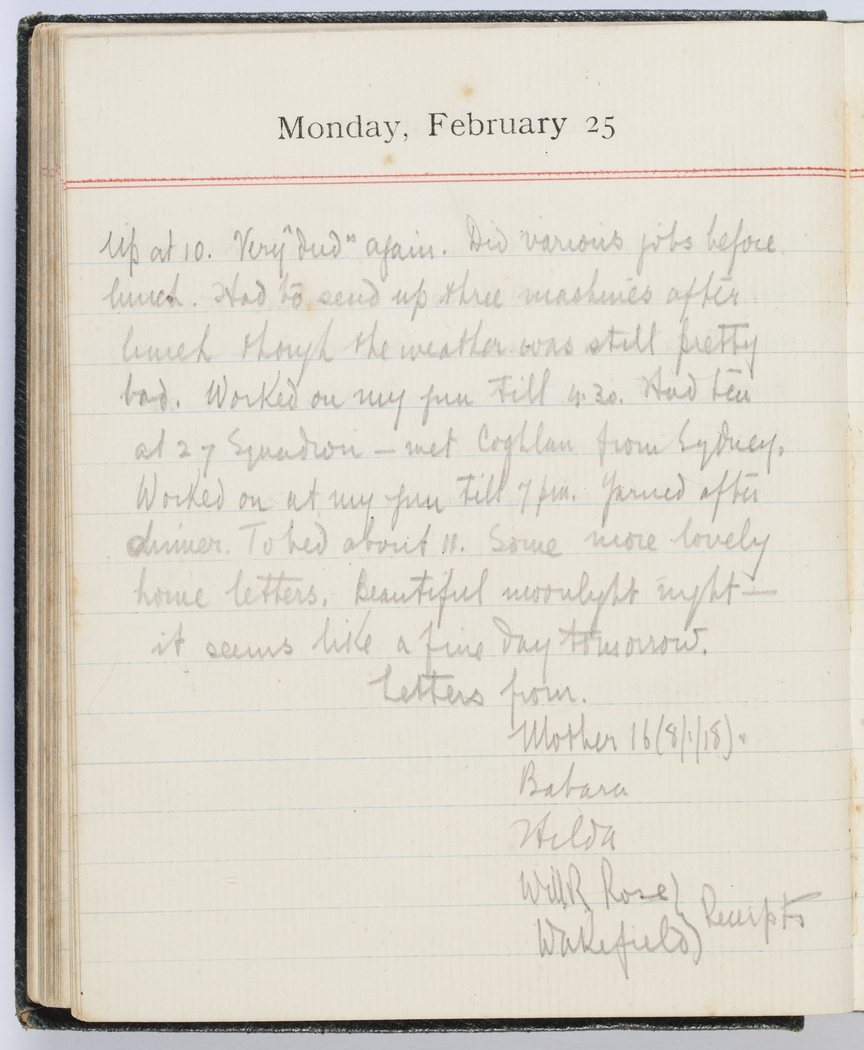 Monday, February 25
Up at 10. Very "dud" again. Did various jobs before
lunch. Had to send up three machines after
lunch though the weather was still pretty
bad. Worked on my gun till 4.30. Had tea
at 27 Squadron – met Coghlan from Sydney.
Worked on at my gun till 7 pm. Yarned after
dinner. To bed about 11. Some more lovely
home letters. Beautiful moonlight night –
it seems like a fine day tomorrow.
Letters from.
Mother 16 (8/1/18).
Babara
Hilda
Will R Rose }
Wakefield } Receipts